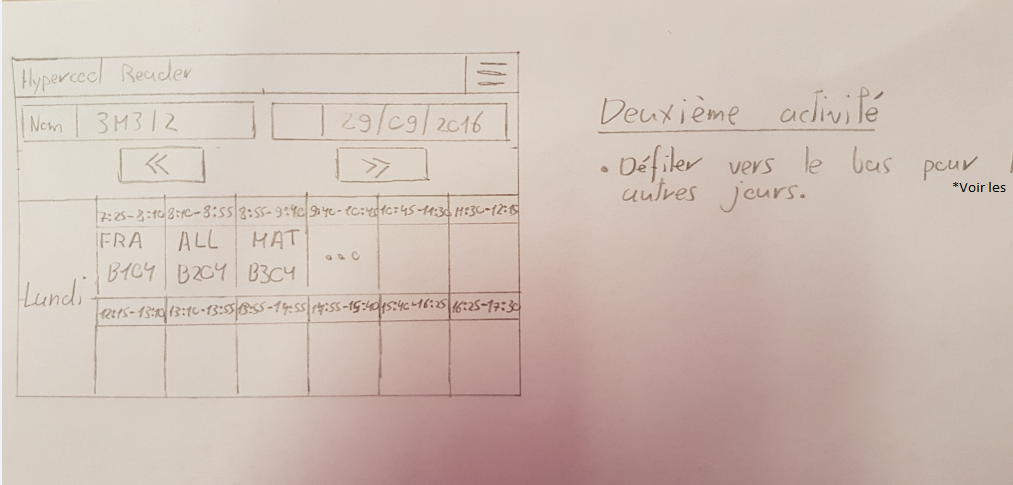 Hypercool Reader
Nom 3M3/2 29/09/2016
« »
7:25-8:10 8:10-8:55 8:55-9:40 9:40-10:40 10:45-11:30 11:30-12:15
FRA ALL MAT ...
B104 B204 B304
Lundi
12:15-13:10 13:10-13:55 13:55-14:55 14:55-15:40 15:40-16:25 16:25-17:30
Deuxième activité
• Défiler vers le bas pour
*Voir les
autres jours.